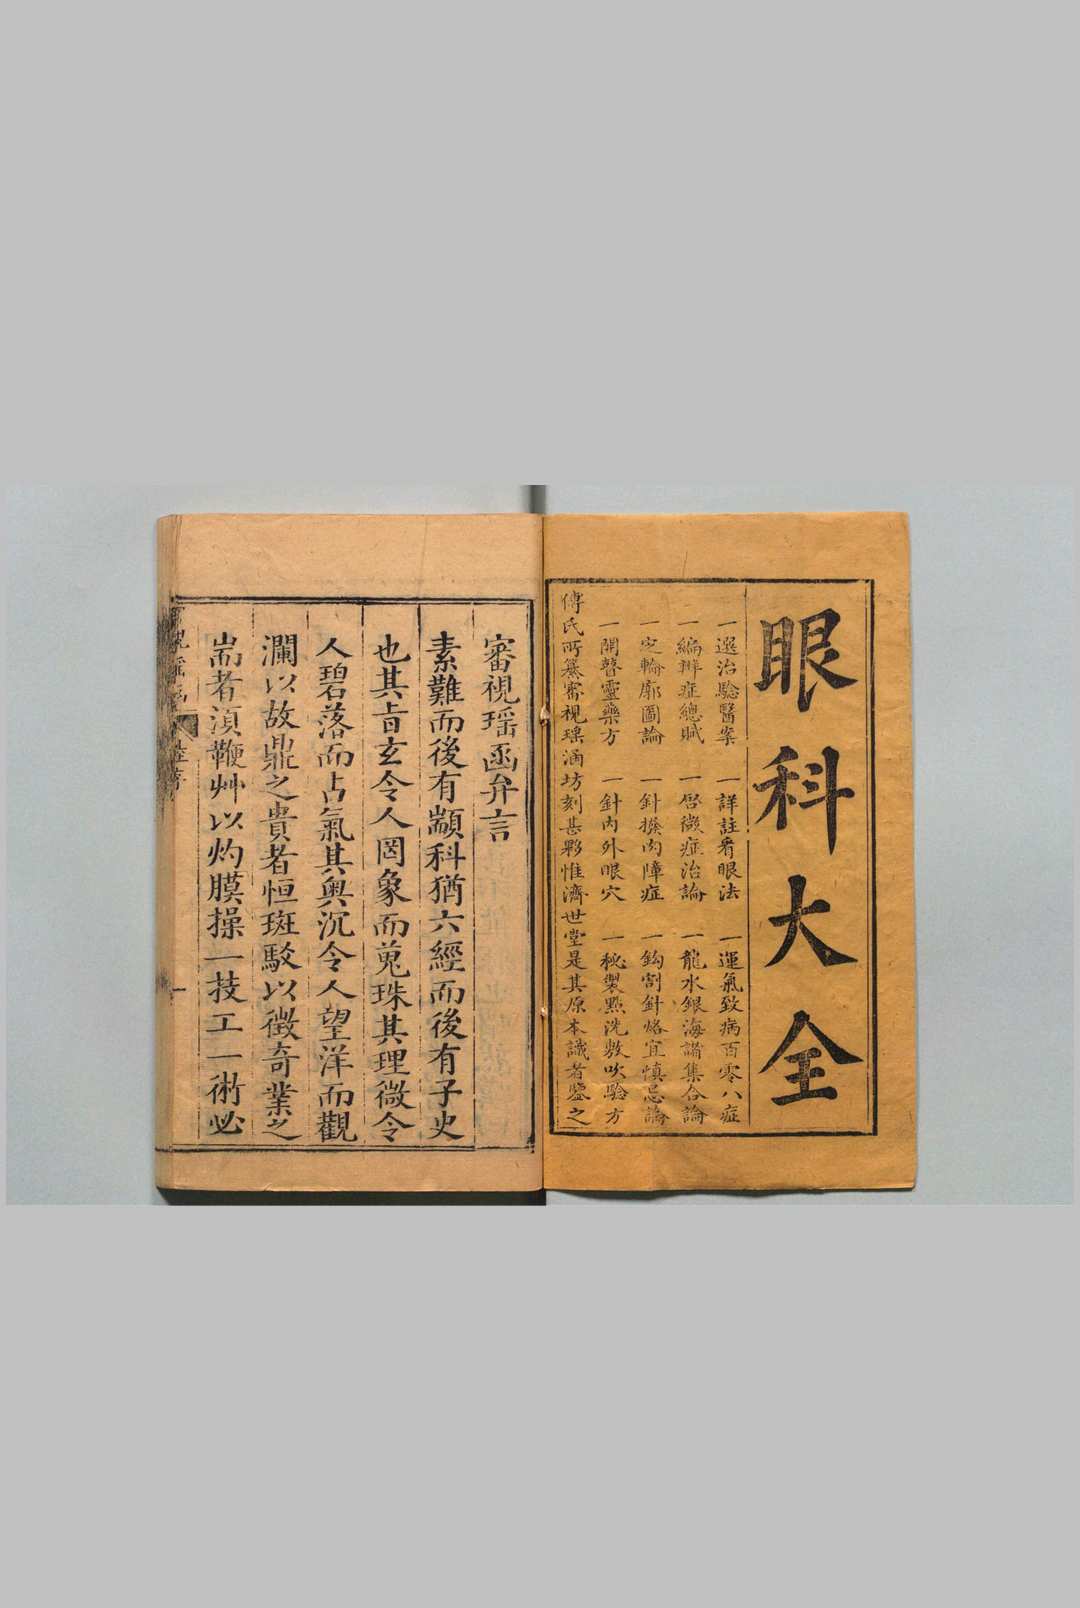 眼科大全
一選治驗醫案 一詳註看眼法 一運氣致病百零八症
一編辯症總賦 一啓微症治論 一龍水銀海諸集合論
一定輪廓圖論 一針撥內障症 一鈎割針烙宜慎忌論
一開瞽靈藥方 一針內外眼穴 一秘製點洗敷吹驗方
傅氏所纂審視瑤涵坊刻甚夥惟濟世堂是其原本識者鑒之
審視瑶函弁言
素難而後有顓科猶六經而後有子史
也其旨玄令人罔象而蒐珠其理微令
人碧落而占氣其奧沉令人望洋而觀
瀾以故鼎之貴者恒斑駁以徵奇業之
耑者湏鞭艸以灼膜操一技工一術必
一